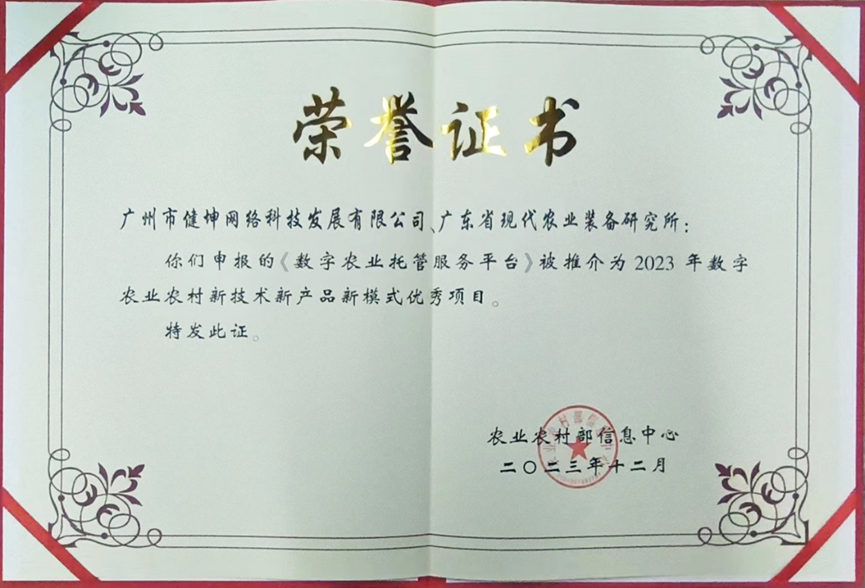 荣誉证书
广州市健坤网络科技发展有限公司、广东省现代农业装备研究所：
你们申报的《数字农业托管服务平台》被推介为 2023 年数字
农业农村新技术新产品新模式优秀项目。
特发此证。
农业农村部信息中心
二〇二三年十二月